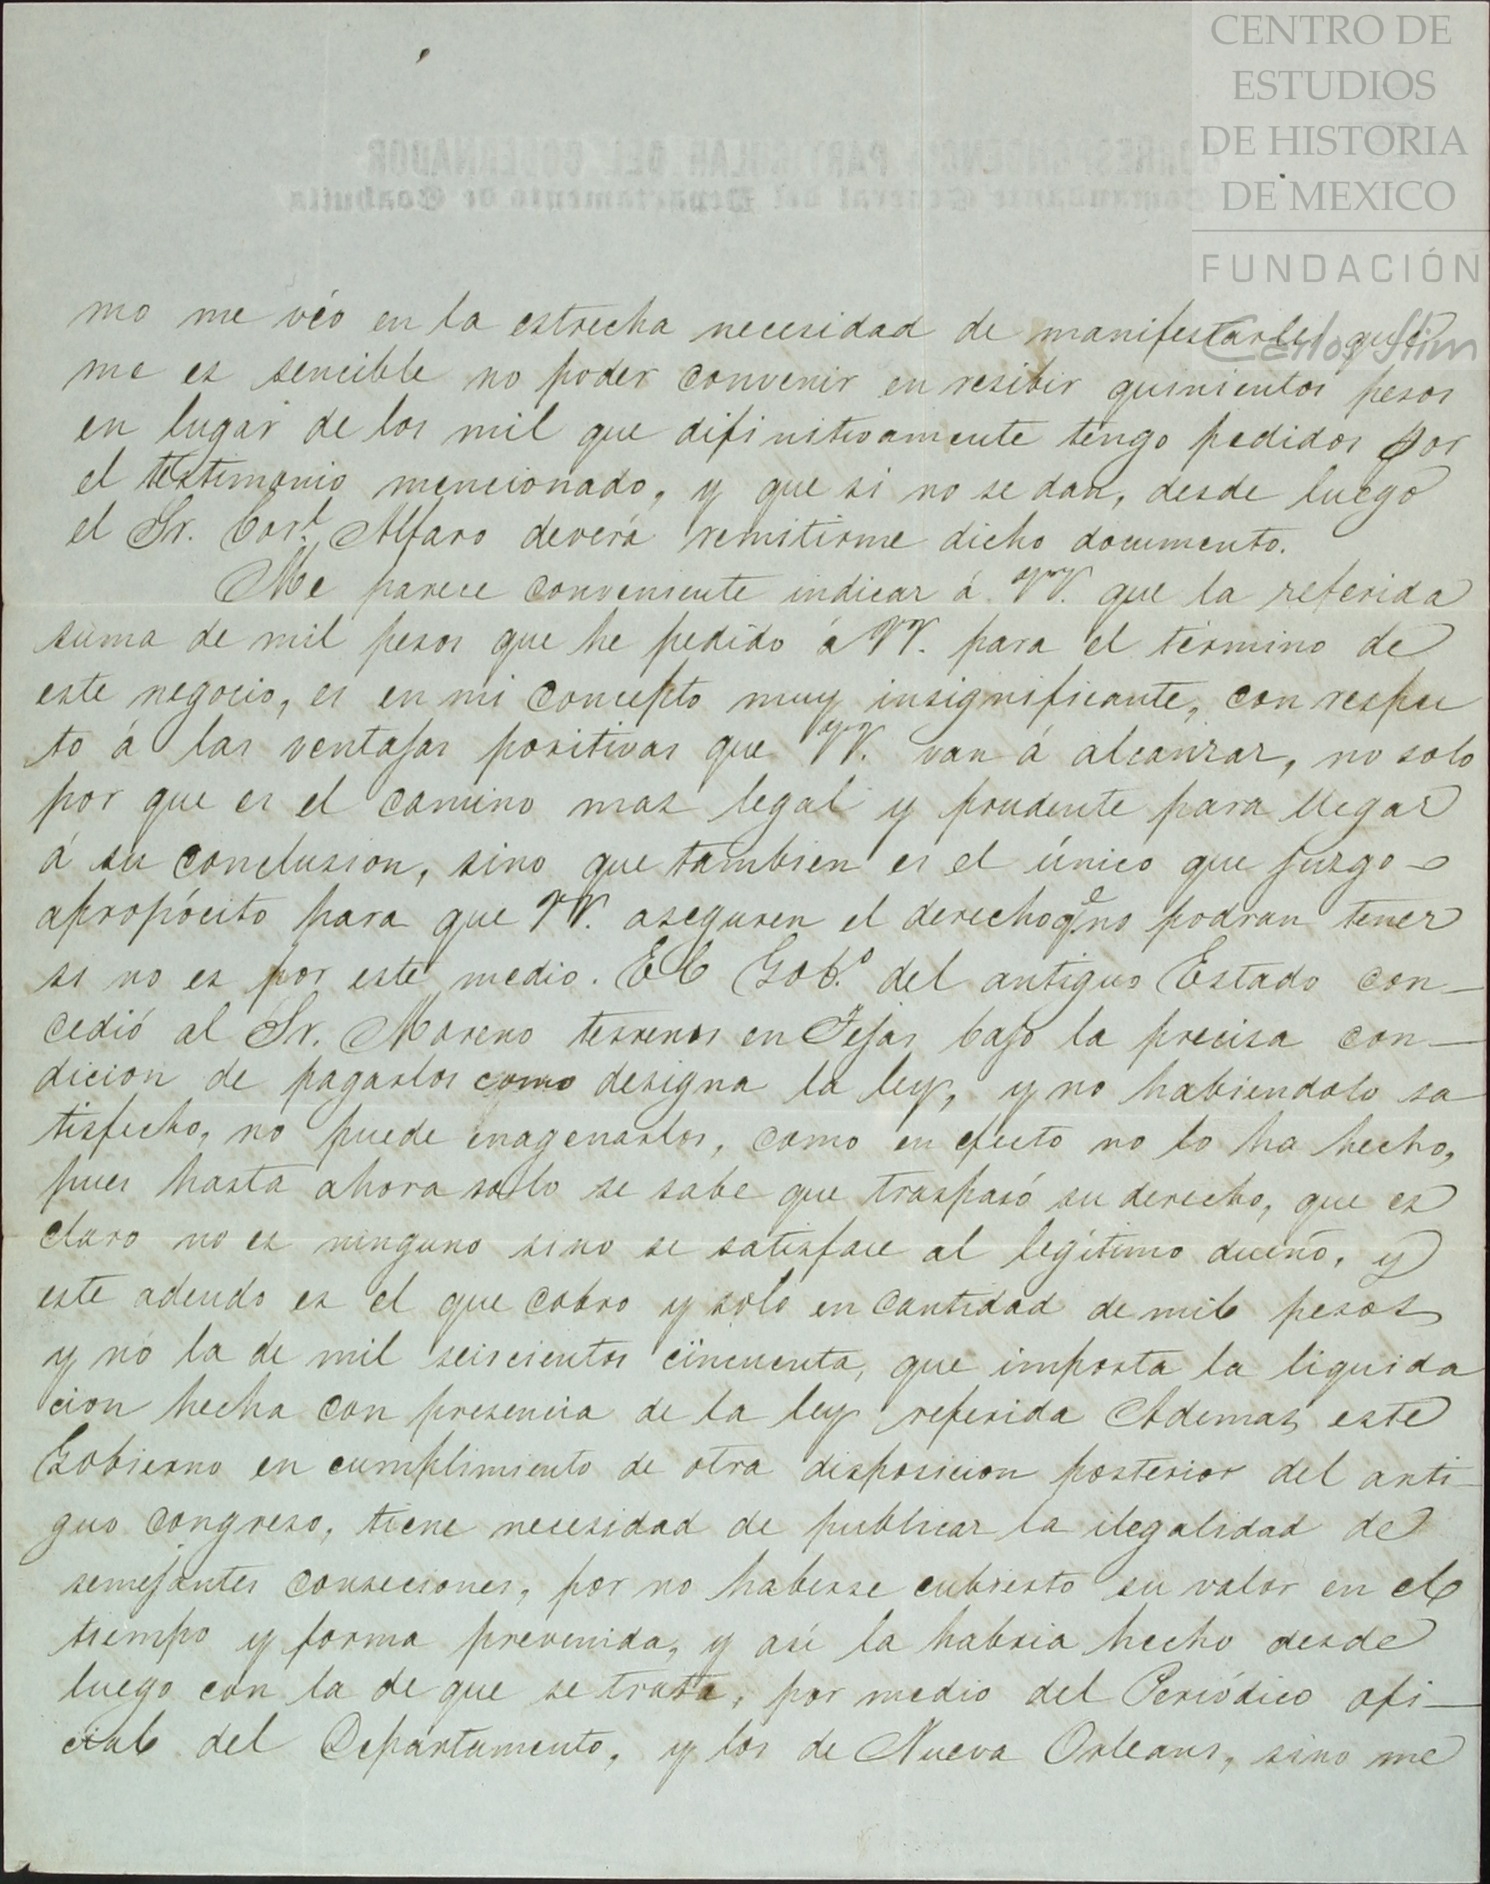 CENTRO DE
ESTUDIOS
DE HISTORIA
DE MEXICO
FUNDACIÓN
Carlos Slim
mo me véo en la estrecha necesidad de manifestarles que
me es sencible no poder convenir en resibir quinientos pesos
en lugar de los mil que difinitivamente tengo pedidos por
el testimonio mencionado, y que si no se dan, desde luego
el Sr. Corl. Alfaro deverá remitirme dicho documento.
Me parece conveniente indicar á VV. que la referida
suma de mil pesos que he pedido á VV. para el término de
este negocio, es en mi concepto muy insignificante, con respec
to á las ventajas positivas que VV. van á alcanzar, no solo
por que es el camino mas legal y prudente para llegar
á su conclusion, sino que tambien es el único que juzgo
apropócito para que VV. aseguren el derecho qe. no podran tener
si no es por este medio. El Gobo. del antiguo Estado con-
cedió al Sr. Moreno terrenos en Tejas bajo la precisa con-
dicion de pagarlos como designa la ley, y no habiendolo sa
tisfecho, no puede enagenarlos, como en efecto no lo ha hecho,
pues hasta ahora solo se sabe que traspasó su derecho, que es
claro no es ninguno sino se satisface al legítimo dueño, y
este adeudo es el que cobro y solo en cantidad de mil pesos
y nó la de mil seiscientos cincuenta, que importa la liquida
cion hecha con presencia de la ley referida Ademas, este
Gobierno en cumplimiento de otra disposicion posterior del anti-
guo congreso, tiene necesidad de publicar la ilegalidad de
semejantes conseciones, por no haberse cubierto su valor en el
tiempo y forma prevenida, y así la habria hecho desde
luego con la de que se trata, por medio del Periódico ofi-
cial del Departamento, y los de Nueva Orleans, sino me